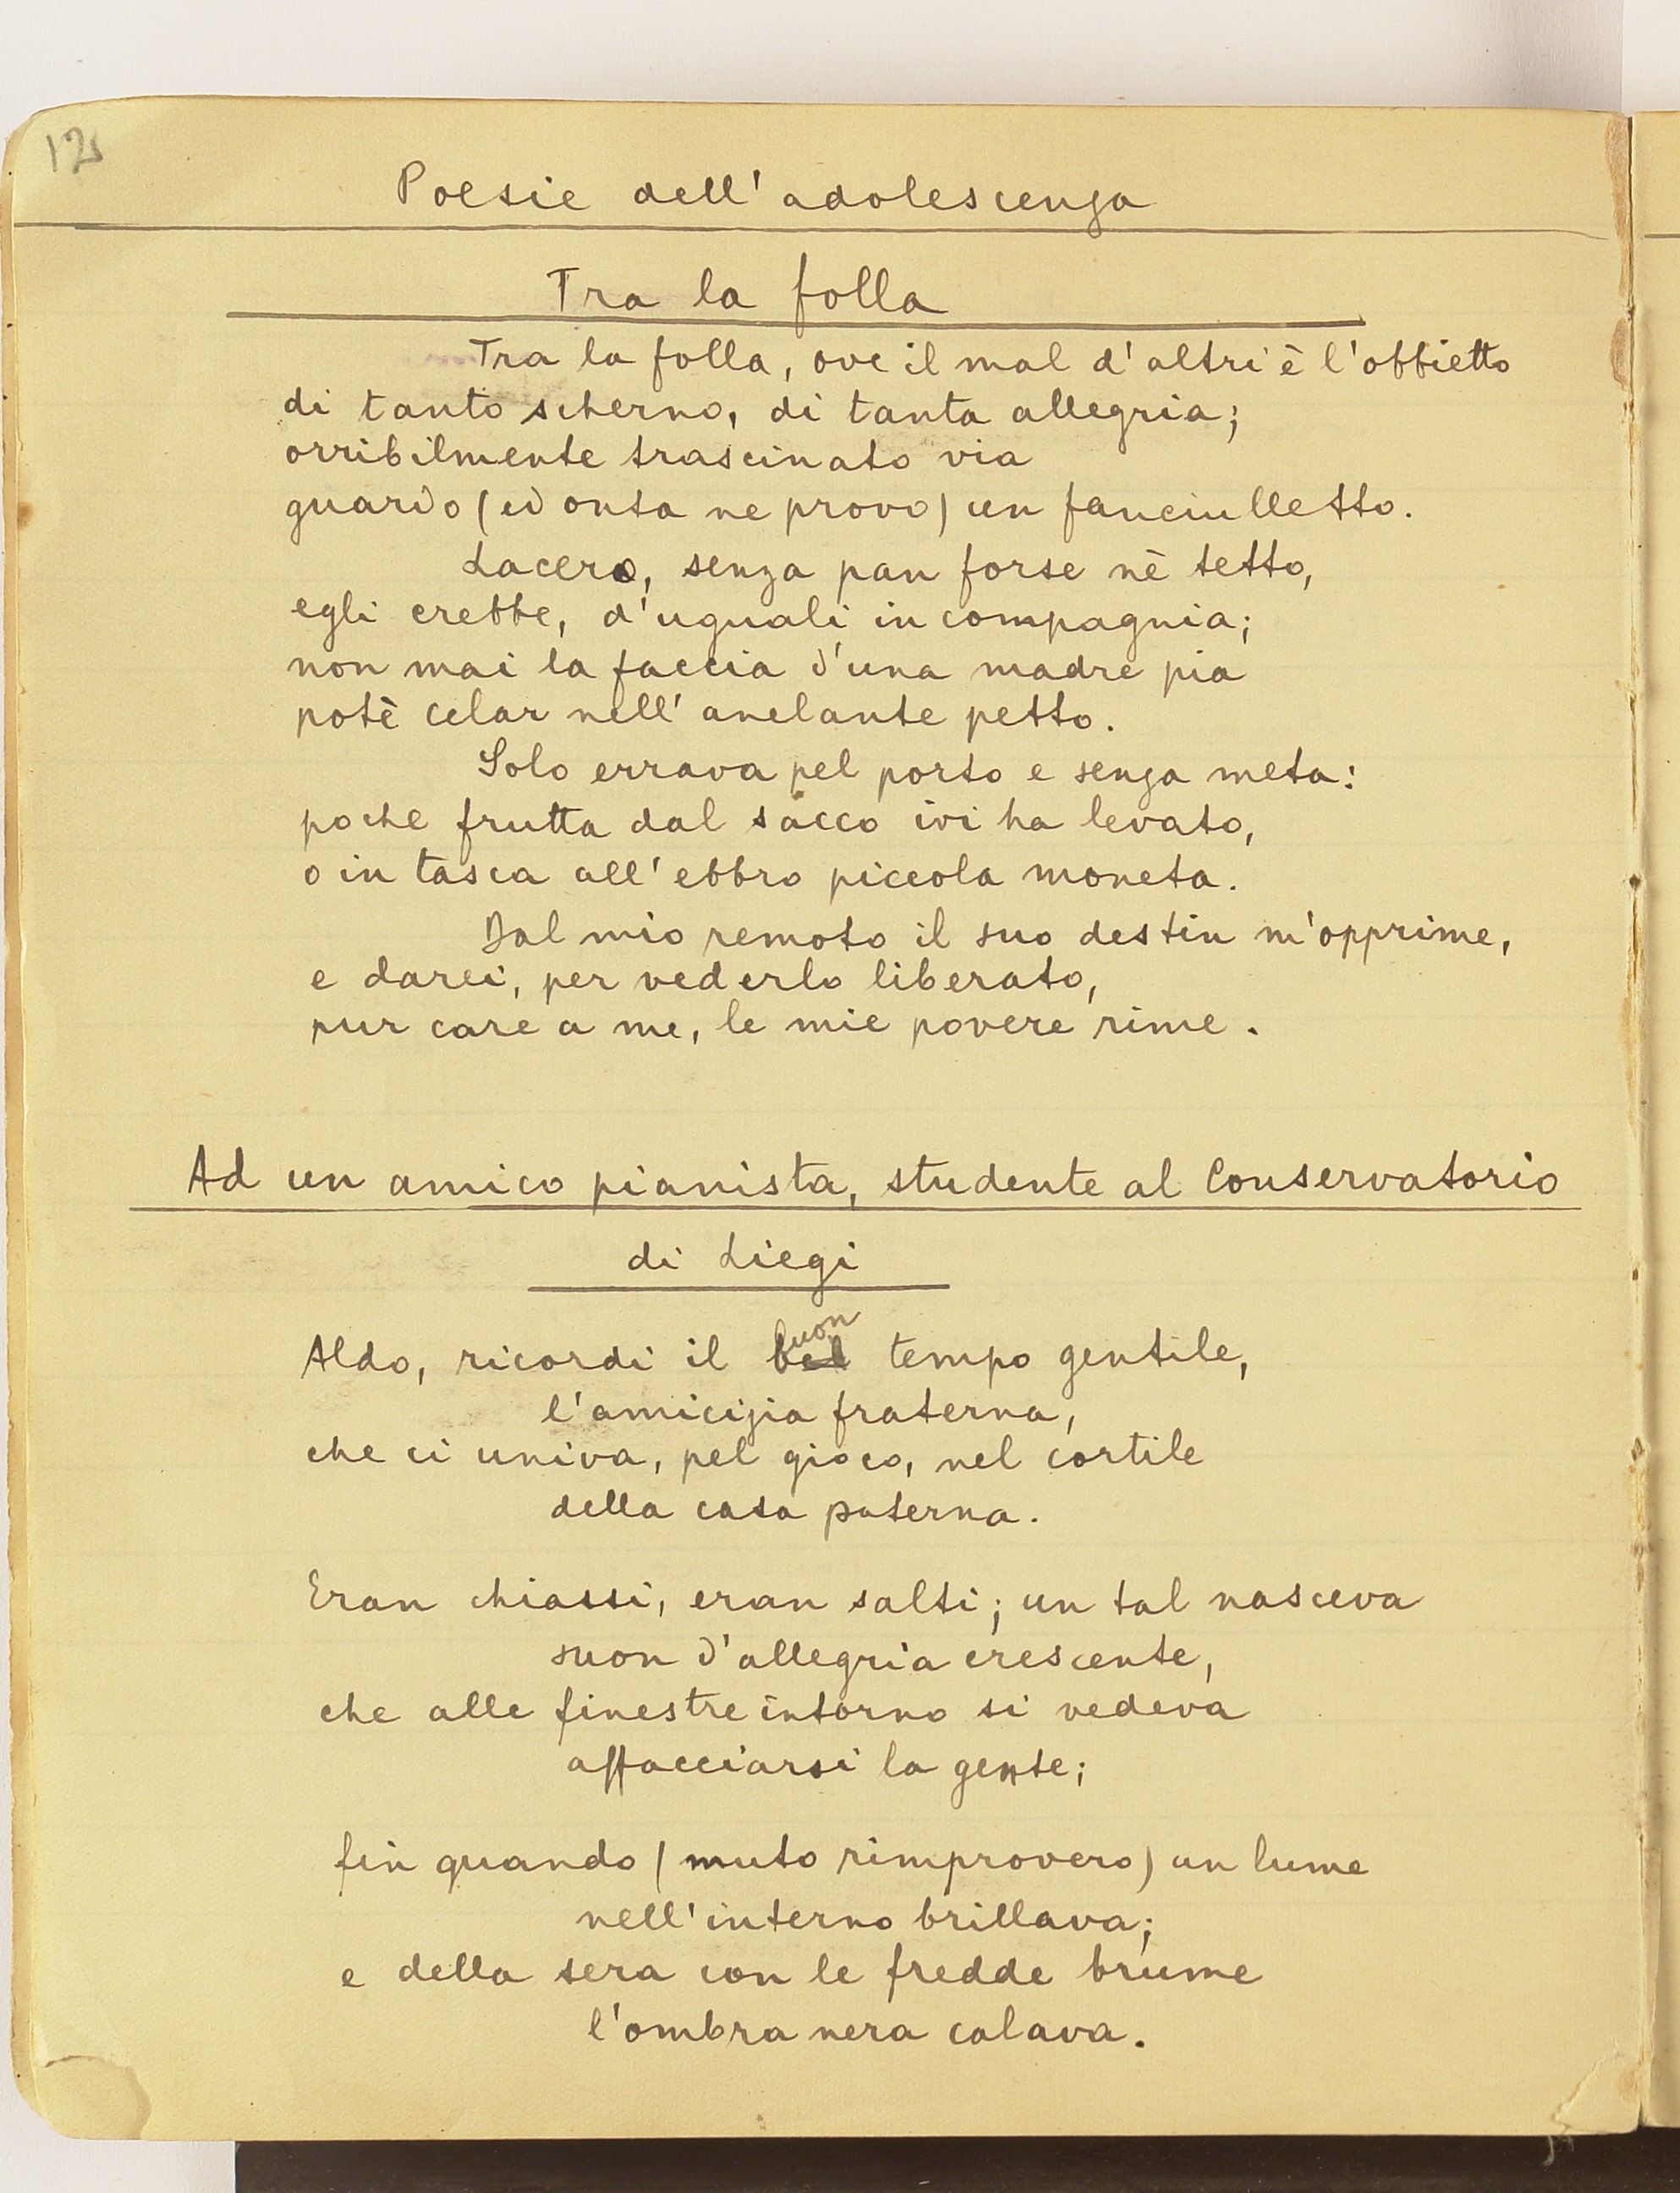 12
Poesie dell'adolescenza
Tra la folla
Tra la folla, ove il mal d'altri è l'obbietto
di tanto scherno, di tanta allegria;
orribilmente trascinato via
guardo (ed onta ne provo) un fanciulletto.
Lacero, senza pan forse nè tetto,
egli crebbe, d'uguali in compagnia;
non mai la faccia d'una madre pia
potè celar nell'anelante petto.
Solo errava pel porto e senza meta:
poche frutta dal sacco ivi ha levato,
o in tasca all'ebbro piccola moneta.
Dal mio remoto il suo destin m'opprime,
e darei, per vederlo liberato,
pur care a me, le mie povere rime.
Ad un amico pianista, studente al Conservatorio
di Liegi
Aldo, ricordi il buon tempo gentile,
l'amicizia fraterna,
che ci univa, pel gioco, nel cortile
della casa paterna.
Eran chiassi, eran salti; un tal nasceva
suon d'allegria crescente,
che alle finestre intorno si vedeva
affacciarsi la gente;
fin quando (muto rimprovero) un lume
nell'interno brillava;
e della sera con le fredde brume
l'ombra nera calava.